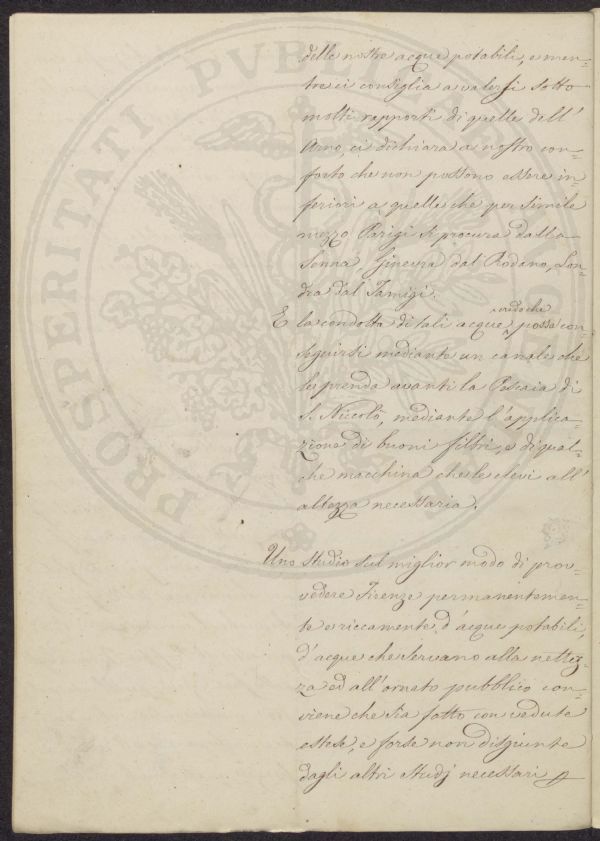 delle nostre acque potabili, e men=
tre ci consiglia a valersi sotto
molti rapporti di quelle dell'
Arno, ci dichiara a nostro con=
forto che non possono essere in=
feriori a quelle che per simile
mezzo Parigi si procura dalla
Senna, Ginevra dal Rodano, Lon=
dra dal Tamigi.
E la condotta di tali acque, credo che possa con
seguirsi mediante un canale che
le prenda avanti la Pescaia di
S. Niccolò, mediante l'applica=
zione di buoni filtri, e di qual=
che macchina che le elevi all'
altezza necessaria.
Uno studio sul miglior modo di prov=
vedere Firenze permanentemen=
te e riccamente d'acque potabili,
d'acque che servano alla nettez=
za ed all'ornato pubblico con=
viene che sia fatto con vedute
estese, e forse non disgiunte
dagli altri studj necessari
PROSPERITATI PVBLICAE